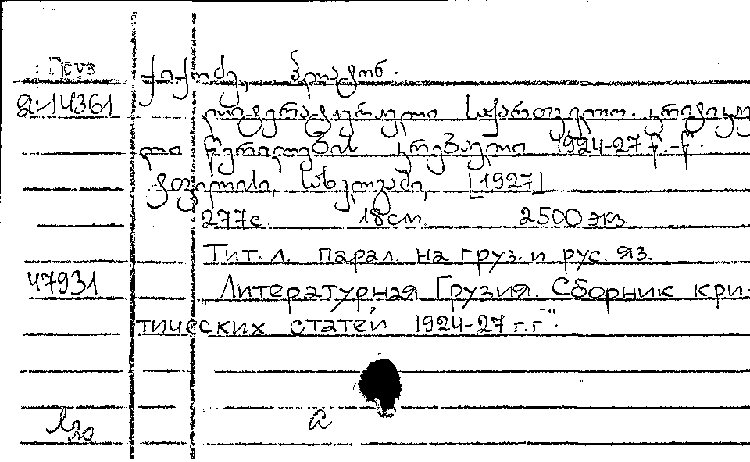 Груз
ჟიჟოძე,
2-14361
ლიტერატურული საქართველო. კრიტიკუ-
ლი წერილების კრებული 1924-27 წ.-წ.
ტფილისი, სახელგამი, [1927]
277с. 18см. 2500 экз
Тит. л. парал. на груз. и рус яз.
47931
Литературная Грузия. Сборник кри-
тических статей 1924-27 г.г".
a